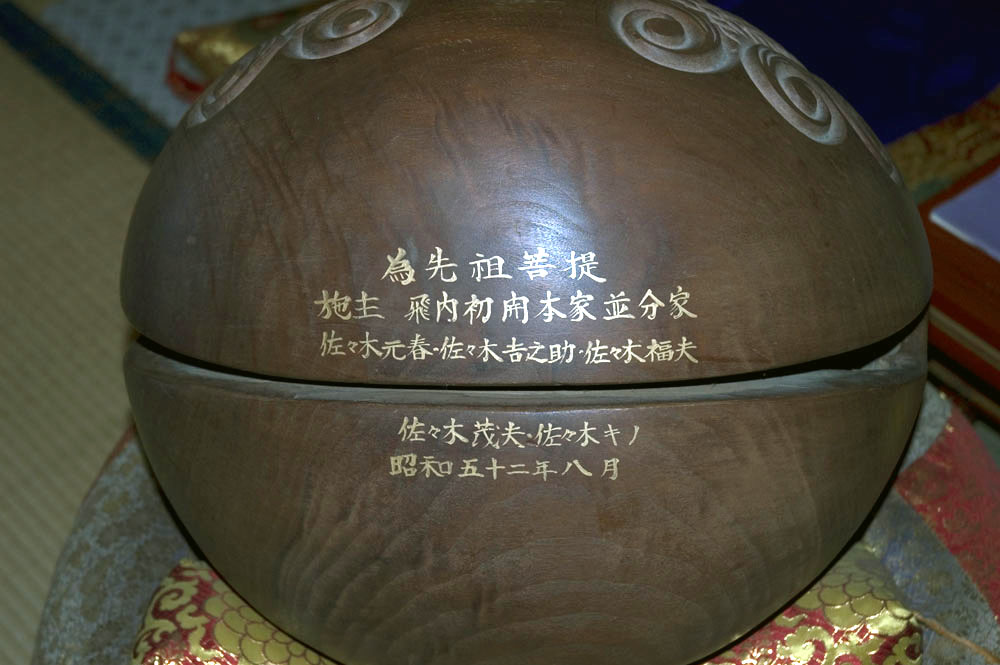 為先祖菩提
施主 飛内初開本家並分家
佐々木元春・佐々木吉之助・佐々木福夫
佐々木茂夫・佐々木キノ
昭和五十二年八月